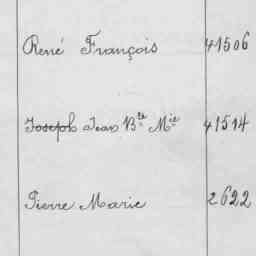 René François 41506
Joseph Jean Bte Mie 41514
Pierre Marie 2622